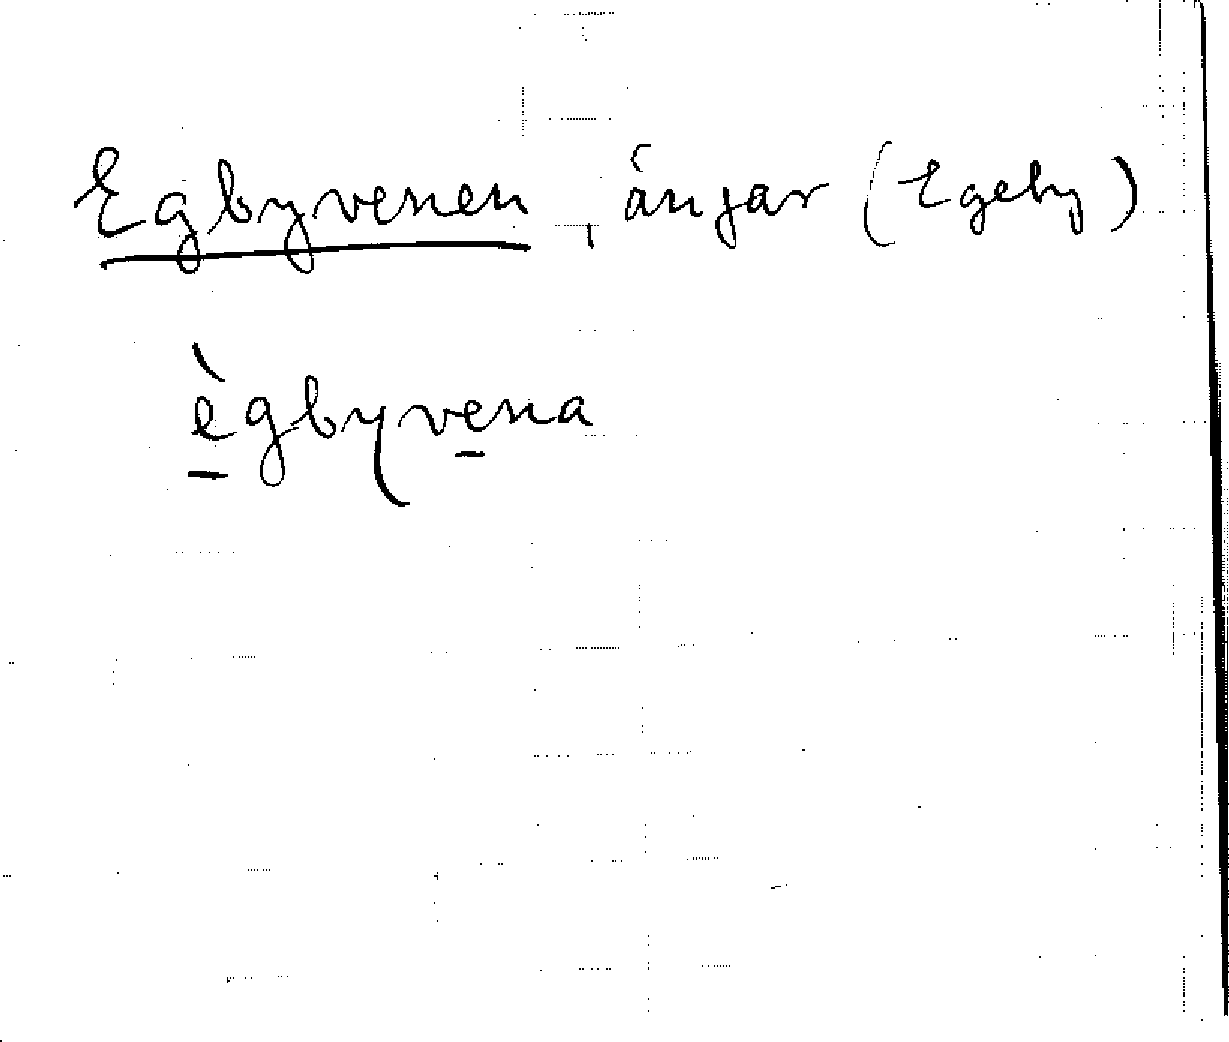 Egbyvenen, ängar (Egeby)
è̱gbyve̱na